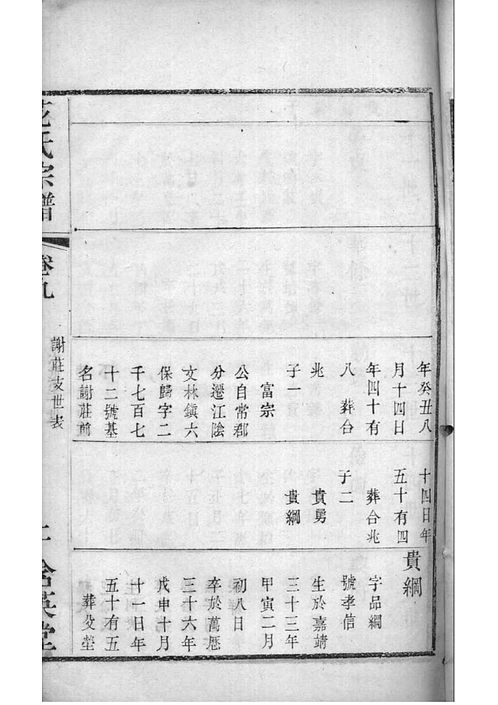 年癸丑八
月十四日
年四十有
八 葬台
兆
子一
富宗
公自常郡
分遷江陰
文林鎮六
保歸字二
千七百七
十二號基
名謝莊前
十四日年
五十有四
葬台兆
子二
貴男
貴綱
貴綱
字品綱
號孝信
生於嘉靖
三十三年
甲寅二月
初八日
卒於萬厯
三十六年
戊申十月
十一日年
五十有五
葬殳堂
氏宗譜
卷九
謝莊支世表
英堂